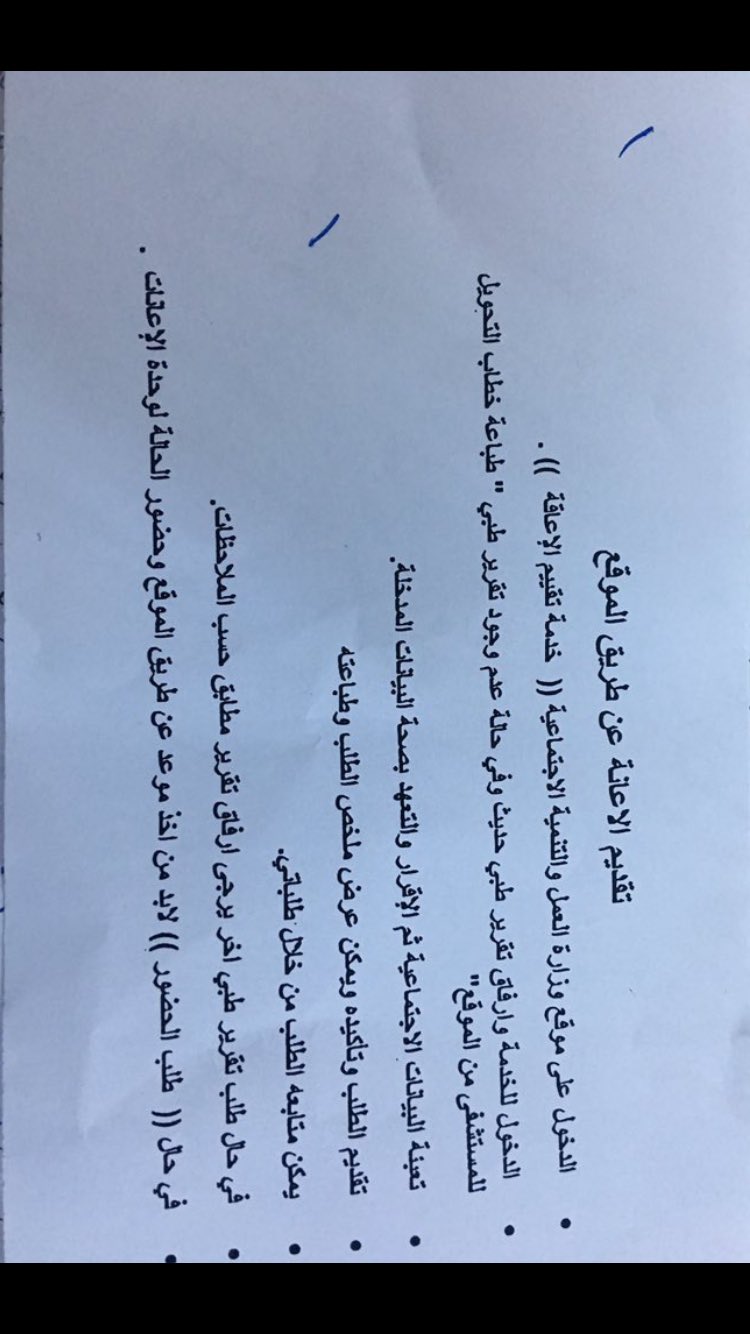 تقديم الاعانة عن طريق الموقع
• الدخول على موقع وزارة العمل والتنمية الاجتماعية (( خدمة تقييم الإعاقة )) .
• الدخول للخدمة وارفاق تقرير طبي حديث وفي حالة عدم وجود تقرير طبي " طباعة خطاب التحويل
للمستشفى من الموقع"
• تعبئة البيانات الاجتماعية ثم الإقرار والتعهد بصحة البيانات المدخلة.
• تقديم الطلب وتأكيده ويمكن عرض ملخص الطلب وطباعته
• يمكن متابعه الطلب من خلال طلباتي.
• في حال طلب تقرير طبي اخر يرجى ارفاق تقرير مطابق حسب الملاحظات.
• في حال (( طلب الحضور )) لابد من اخذ موعد عن طريق الموقع وحضور الحالة لوحدة الإعانات .